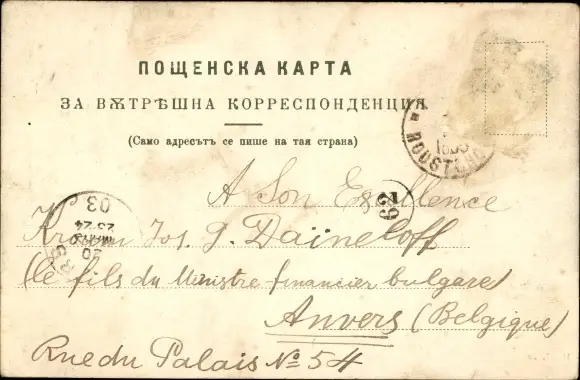 ПОЩЕНСКА КАРТА
ЗА ВѪТРѢШНА КОРРЕСПОНДЕНЦИЯ
(Само адресътъ се пише на тая страна)
ROUSTCHOU
A Son Exellence
62
03
23-24
MARS
20
Jos. G. Daïneloff
(le fils du Ministre financier bulgare)
Anvers (Belgique)
Rue du Palais No 54